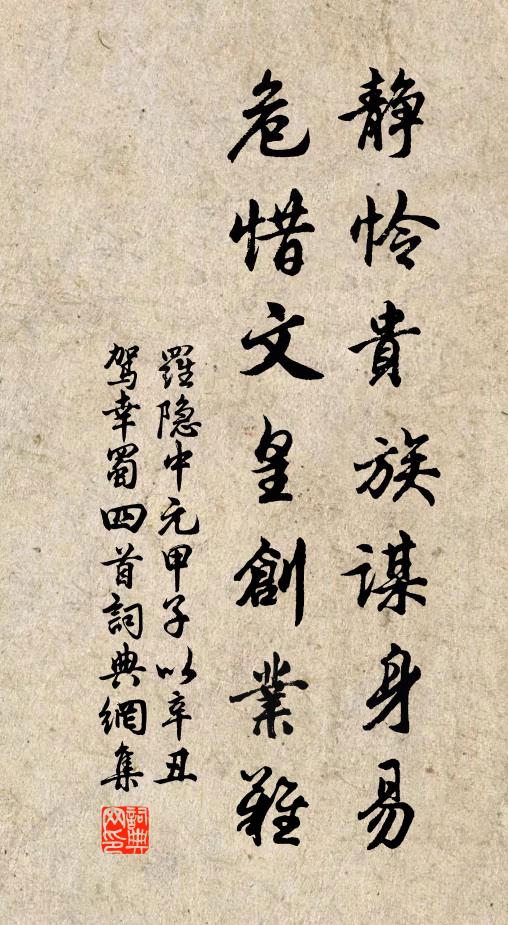 静怜貴族謀身易
危惜文皇創業難
羅隐中元甲子以辛丑
駕幸蜀四首詞典網集
詞典
网印